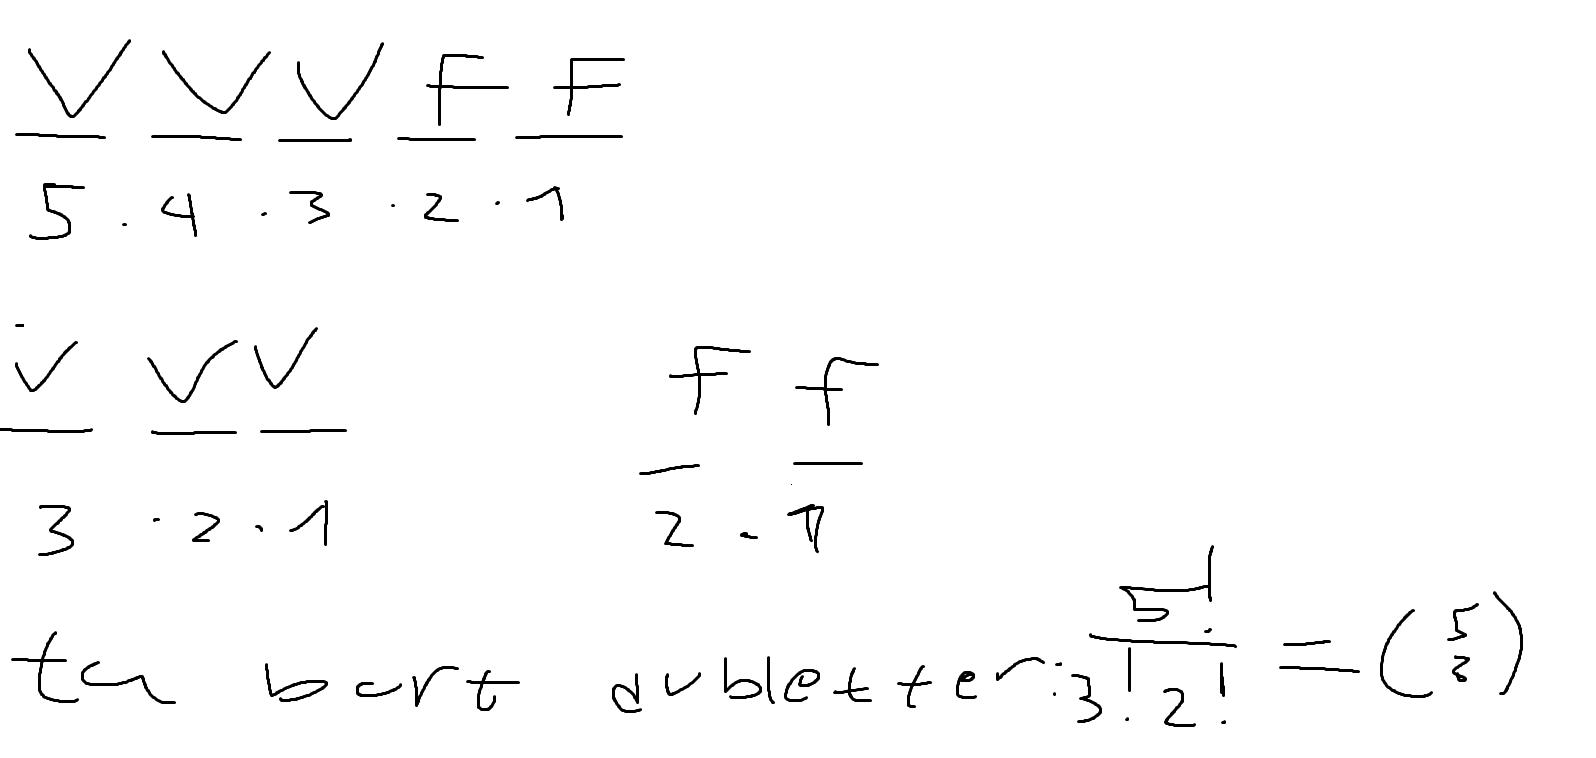 V V V F F
5 . 4 . 3 . 2 . 1
V V V F f
3 . 2 . 1 2 . 1
ta bort dubletter: 5! / 3! 2! = (5 3)